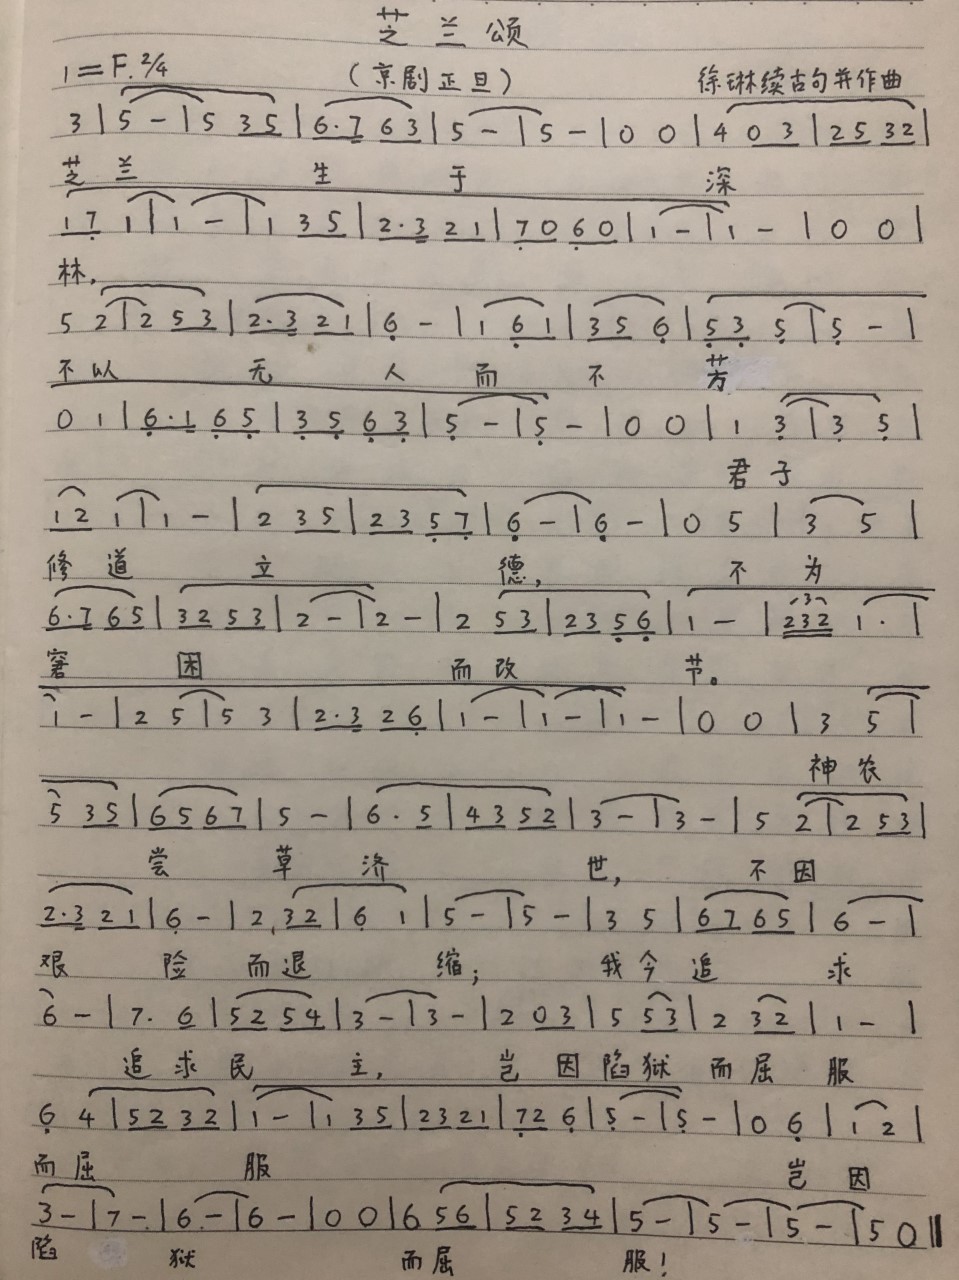 芝兰颂
1=F 2/4 （京剧正旦） 徐琳续古句并作曲
3 | 5 - | 5 3 5 | 6·7 6 3 | 5 - | 5 - | 0 0 | 4 0 3 | 2 5 3 2 |
芝 兰 生 于 深
1 7 1 | 1 - | 1 3 5 | 2·3 2 1 | 7 0 6 0 | 1 - | 1 - | 0 0 |
林，
5 2 | 2 5 3 | 2·3 2 1 | 6 - | 1 6 1 | 3 5 6 | 5 3 5 | 5 - |
不 以 无 人 而 不 芳
0 1 | 6·1 6 5 | 3 5 6 3 | 5 - | 5 - | 0 0 | 1 3 | 3 5 |
君 子
1 2 1 | 1 - | 2 3 5 | 2 3 5 7 | 6 - | 6 - | 0 5 | 3 5 |
修 道 立 德， 不 为
6·7 6 5 | 3 2 5 3 | 2 - | 2 - | 2 5 3 | 2 3 5 6 | 1 - | 2 3 2 1· |
窘 困 而 改 节。
1 - | 2 5 | 5 3 | 2·3 2 6 | 1 - | 1 - | 1 - | 0 0 | 3 5 |
神 农
5 3 5 | 6 5 6 7 | 5 - | 6·5 | 4 3 5 2 | 3 - | 3 - | 5 2 | 2 5 3 |
尝 草 济 世， 不 因
2·3 2 1 | 6 - | 2 3 2 | 6 1 | 5 - | 5 - | 3 5 | 6 7 6 5 | 6 - |
艰 险 而 退 缩； 我 今 追 求
6 - | 7· 6 | 5 2 5 4 | 3 - | 3 - | 2 0 3 | 5 5 3 | 2 3 2 | 1 - |
追 求 民 主， 岂 因 陷 狱 而 屈 服
6 4 | 5 2 3 2 | 1 - | 1 3 5 | 2 3 2 1 | 7 2 6 | 5 - | 5 - | 0 6 | 1 2 |
而 屈 服 岂 因
3 - | 7 - | 6 - | 6 - | 0 0 | 6 5 6 | 5 2 3 4 | 5 - | 5 - | 5 - | 5 0 ‖
陷 狱 而 屈 服！